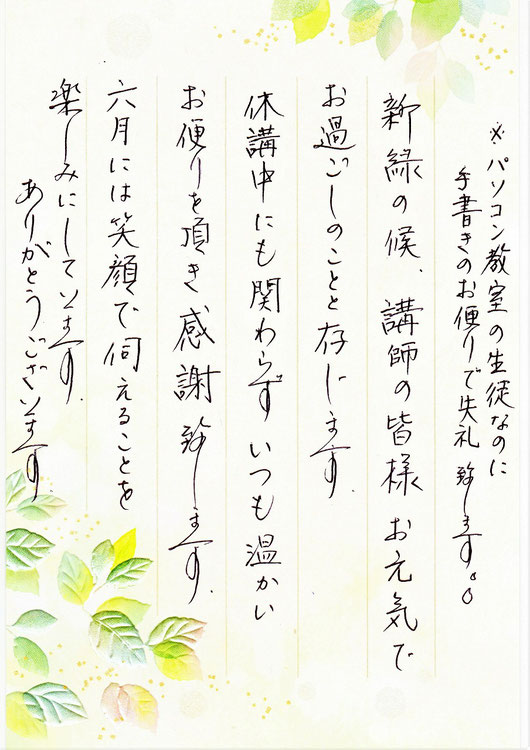 ※パソコン教室の生徒なのに
手書きのお便りで失礼致します。
新緑の候、講師の皆様お元気で
お過ごしのことと存じます。
休講中にも関わらずいつも温かい
お便りを頂き感謝致します。
六月には笑顔で伺えることを
楽しみにしています。
ありがとうございます。